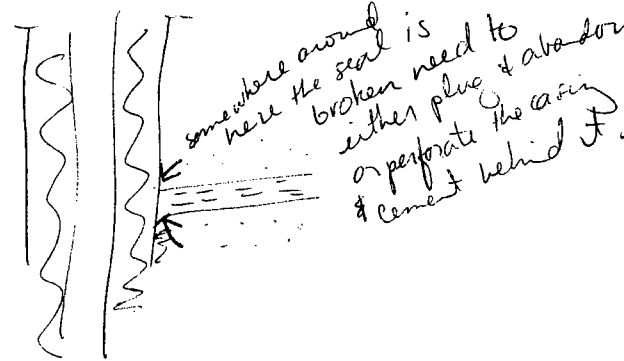 somewhere around
here the seal is
broken need to
either plug & abandon
or perforate the casing
& cement behind it.